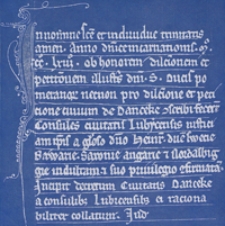 In nomine sc̄e et individue trinitatis
amen. Anno dn̄ice incarnationis. M̊.
cc. lxiii. ob honorem dilc̄ionem et
petic̄onem illustris dn̄i. S. ducis po
meranor̄ necnon pro dilc̄ione et pe
ticione civium de Danceke scribi fecer̄
Consules civitatis Lubycensis iustici
am ip̄is a gl̄oso dn̄o Henr̄. duce
Bawarie. Saxonie angarie
gie indultam et suo privilegio c̄firmatā.
Incipit decretum Civitatis Danceke
a consulibus Lubicensibus et raciona
biliter collatum. Iud